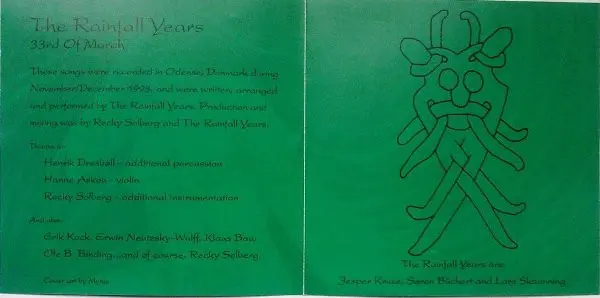 The Rainfall Years
33rd Of March
These songs were recorded in Odense, Denmark during
November/December 1993, and were written, arranged
and performed by The Rainfall Years. Production and
mixing was by Recky Solberg and The Rainfall Years.
Thanks to:
Henrik - additional percussion
Hanne Askou - violin
Recky Solberg - additional instrumentation
And also:
Erik Kock, Erwin Neutzsky-Wulff, Klaus
Ole B. ...and of course, Recky Solberg
Cover art by
The Rainfall Years are:
Jesper Knaa, Søren Büchert and Lars